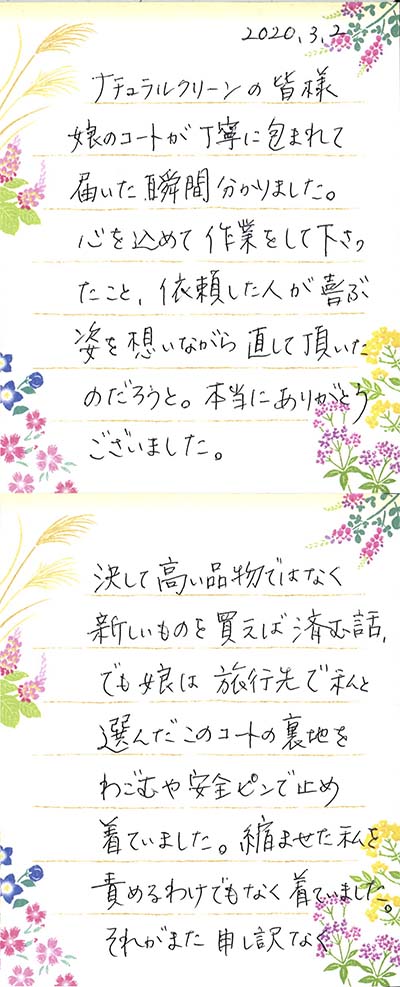 2020.3.2
ナチュラルクリーンの皆様
娘のコートが丁寧に包まれて
届いた瞬間分かりました。
心を込めて作業をして下さっ
たこと、依頼した人が喜ぶ
姿を想いながら直して頂いた
のだろうと。本当にありがとう
ございました。
決して高い品物ではなく
新しいものを買えば済む話、
でも娘は旅行先で私と
選んだこのコートの裏地を
わごむや安全ピンで止め
着ていました。縮ませた私を
責めるわけでもなく着ていました。
それがまた申し訳なく